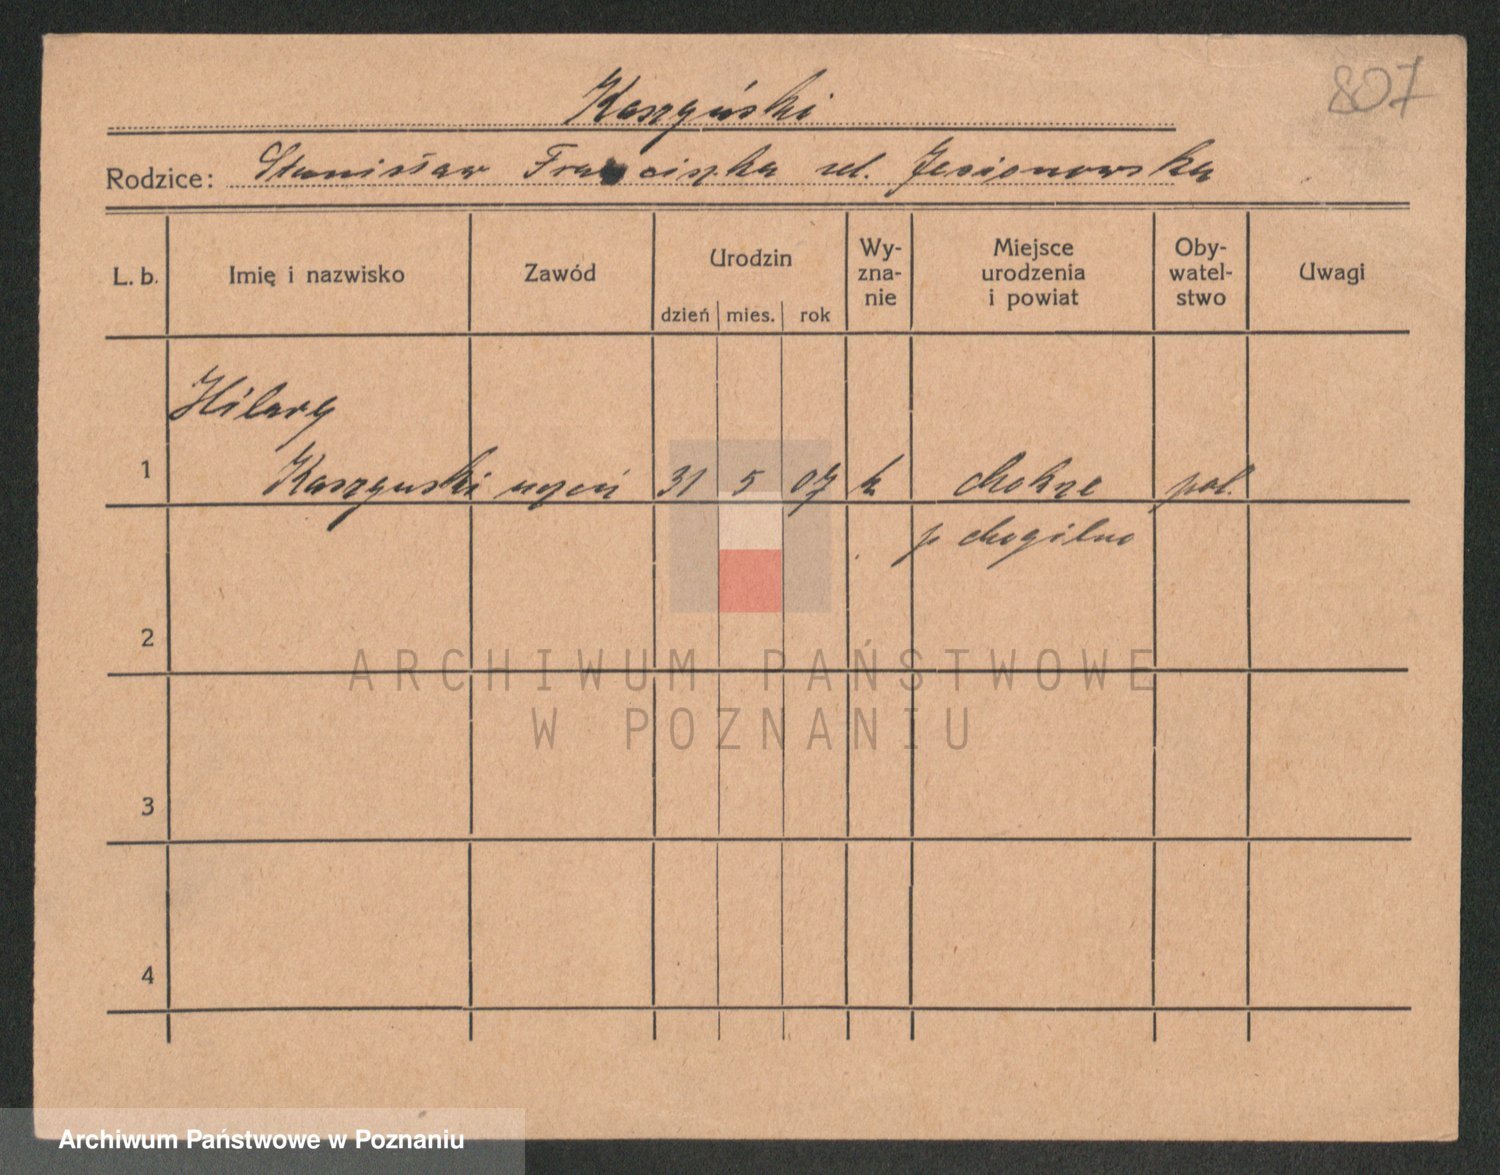 807
Kaszyński
Rodzice: Stanisław Franciszka ul. Jesionowska
L. b. Imię i nazwisko Zawód Urodzin dzień mies. rok Wy-zna-nie Miejsce urodzenia i powiat Oby-watel-stwo Uwagi
Hilary
1 Kaszyński uczeń 31 5 07 k Mokre pol.
p Mogilno
2
ARCHIWUM PAŃSTWOWE
W POZNANIU
3
4
Archiwum Państwowe w Poznaniu